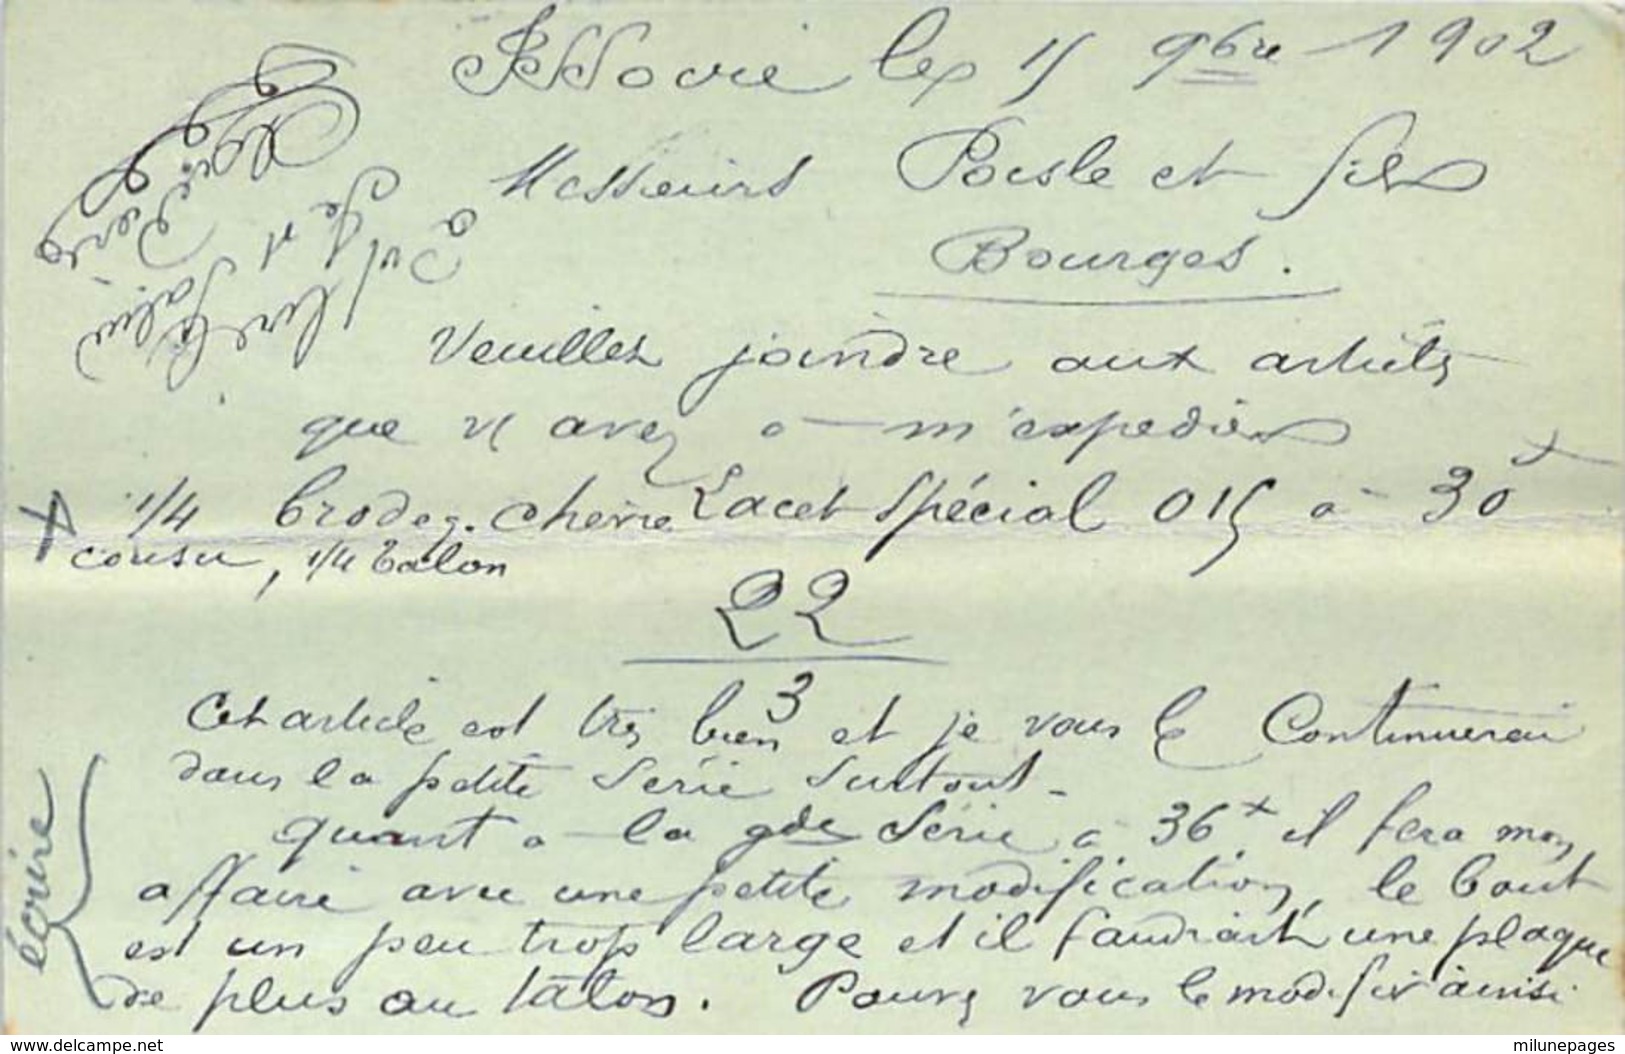 le 15 9bre 1902
Messieurs Poisle et fils
Bourges.
Veuillez joindre aux articles
que vs avez à m'expédier
1/4 brodeq. chèvre Lacet Spécial 015 à 30
cousu, 1/4 talon
22
3
Cet article est très bien et je vous le Continuerai
dans la petite Série Surtout -
quant à la gde Série à 36 il fera mon
affaire avec une petite modification, le bout
est un peu trop large et il faudrait une plaque
de plus au talon. Pouvez vous le modifier ainsi
écrire
delcampe.net
milunepages